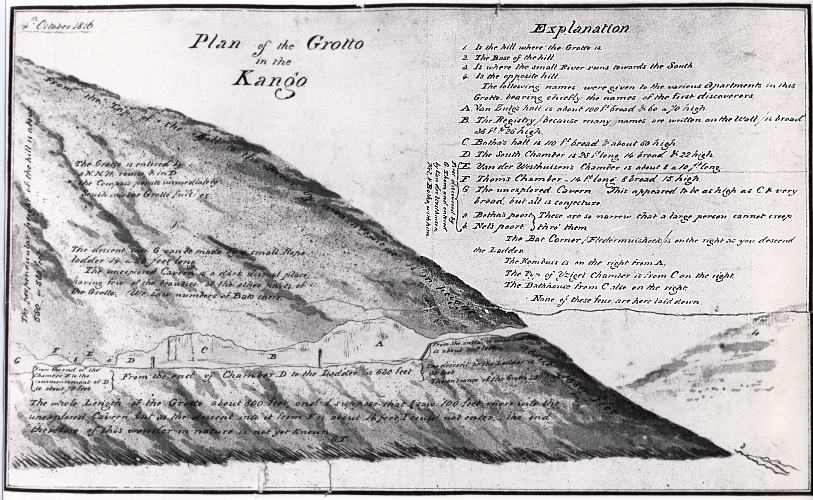 4th October 1816
Plan of the Grotto
in the
Kango
Explanation
1. Is the hill where the Grotto is
2. The Base of the hill.
3. Is where the small River runs towards the South.
4. Is the opposite hill.
The following names were given to the various Apartments in this
Grotto, bearing chiefly the names of the first discoverers
A. Van Zulg's hall is about 100 ft broad & 60 a 70 high
B. The Registry/because many names are written on the Wall/is broad
35 ft & 25 high.
C. Botha's hall is 110 ft broad & about 50 high
D. The South Chamber is 25 ft long 14 broad & 22 high
E. Van der Westhuisen's Chamber is about 8 a 10 ft long
F. Thom's Chamber 14 ft long 8 broad 15 high
G. The unexplored Cavern. This appeared to be as high as C & very
broad, but all is conjecture.
a. Botha's poort
b. Nel's poort
These are so narrow that a large person cannot creep
thro' them
The Bat Corner/Fledermuishoek/is on the right as you descend
the Ladder.
The Kombuis is on the right from A.
The Chamber is from C on the right
The Bathhouse from C also on the right
None of these four are here laid down.
First discovered by
From the Top of the
The perpendicular of the hill is about
The Grotto is entered by
a N.N.W. route & in D
the Compass points immediately
The descent into G was made by a small Rope
ladder 14 a 20 feet long
The unexplored Cavern is a dark dismal place
having few of the beauties of the other parts of
the Grotto. We saw numbers of Bats there
G F b E a D C B A
From the end of the
Chamber F to the
commencement of D
is about 70 feet
From the east of Chamber D to the Ladder is 630 feet
From the entrance
is about
The descent by the Ladder is
feet
The entrance of the
The whole Length of the Grotto about 800 feet and I suppose that I saw 100 feet more into the
unexplored Cavern but as the descent into it from F is about 14 feet I could not enter. the end
therefore of this wonder in nature is not yet Known
GT
4
3